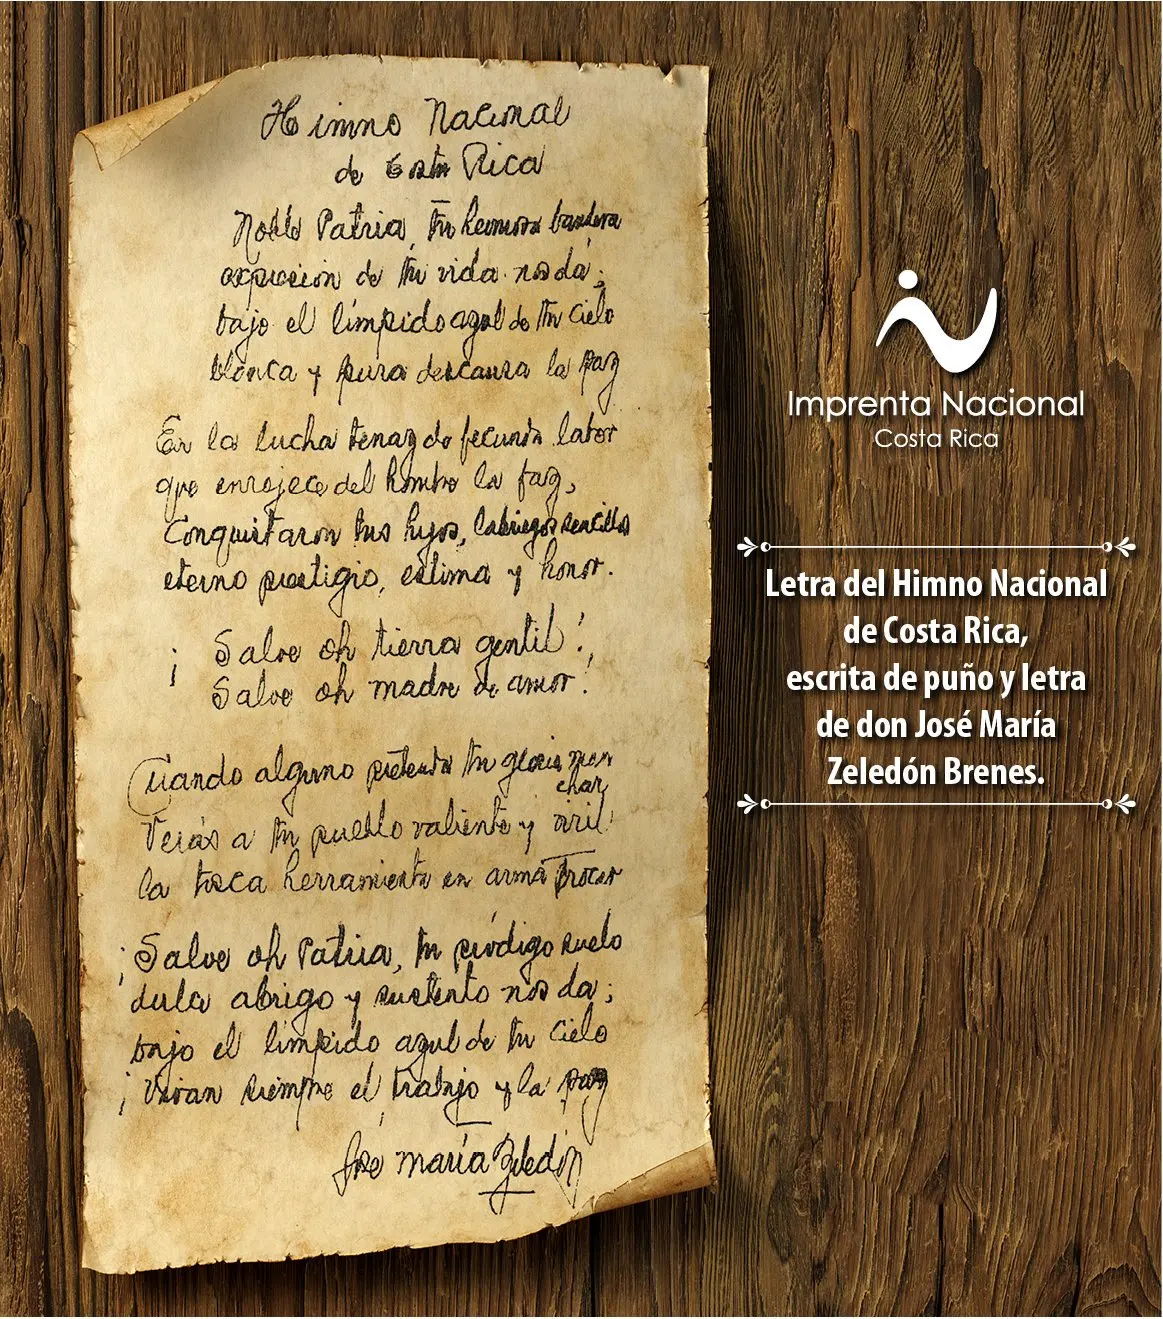 Himno Nacional
de Costa Rica
Noble Patria, tu hermosa bandera
expresión de tu vida nos da;
bajo el límpido azul de tu cielo
blanca y pura descansa la paz
En la lucha tenaz de fecunda labor
que enrojece del hombre la faz,
conquistaron tus hijos, labriegos sencillos
eterno prestigio, estima y honor.
¡ Salve oh tierra gentil!
Salve oh madre de amor!
Cuando alguno pretenda tu gloria man
char
Verás a tu pueblo valiente y viril
la tosca herramienta en arma trocar
¡Salve oh Patria, tu pródigo suelo
dulce abrigo y sustento nos da;
bajo el límpido azul de tu cielo
¡Vivan siempre el trabajo y la paz
José María Zeledón
Imprenta Nacional
Costa Rica
Letra del Himno Nacional
de Costa Rica,
escrita de puño y letra
de don José María
Zeledón Brenes.